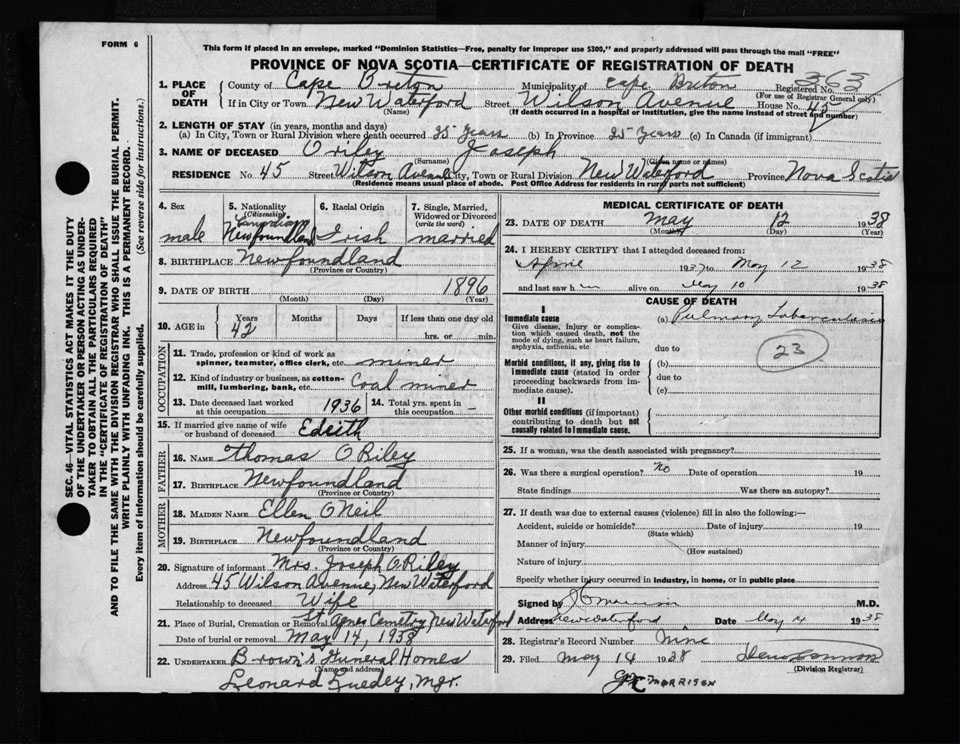 FORM 6
This form if placed in an envelope, marked "Dominion Statistics—Free, penalty for improper use $300," and properly addressed will pass through the mail "FREE"
PROVINCE OF NOVA SCOTIA—CERTIFICATE OF REGISTRATION OF DEATH
363
1. PLACE OF DEATH County of Cape Breton Municipality of Cape Breton Registered No.
(For use of Registrar General only)
If in City or Town New Waterford Street Wilson Avenue House No. 45
(Name) (If death occurred in a hospital or institution, give the name instead of street and number)
2. LENGTH OF STAY (in years, months and days)
(a) In City, Town or Rural Division where death occurred 25 Years (b) In Province 25 Years (c) In Canada (if immigrant)
3. NAME OF DECEASED Oriley Joseph
(Surname) (Given name or names)
RESIDENCE No. 45 Street Wilson Avenue City, Town or Rural Division New Waterford Province Nova Scotia
(Residence means usual place of abode. Post Office Address for residents in rural parts not sufficient)
4. Sex male
5. Nationality (Citizenship) Canadian Newfoundland
6. Racial Origin Irish
7. Single, Married, Widowed or Divorced (write the word) married
8. BIRTHPLACE Newfoundland
(Province or Country)
9. DATE OF BIRTH 1896
(Month) (Day) (Year)
10. AGE in Years 42 Months Days If less than one day old
hrs. or min.
OCCUPATION
11. Trade, profession or kind of work as spinner, teamster, office clerk, etc. miner
12. Kind of industry or business, as cotton-mill, lumbering, bank, etc. Coal miner
13. Date deceased last worked at this occupation 1936 14. Total yrs. spent in this occupation –
15. If married give name of wife or husband of deceased Edeith
FATHER
16. NAME Thomas ORiley
17. BIRTHPLACE Newfoundland
(Province or Country)
MOTHER
18. MAIDEN NAME Ellen ONeil
19. BIRTHPLACE Newfoundland
(Province or Country)
20. Signature of informant Mrs. Joseph ORiley
Address 45 Wilson Avenue, New Waterford
Relationship to deceased Wife
21. Place of Burial, Cremation or Removal St Agnes Cemetry, New Waterford
Date of burial or removal May 14, 1938
22. UNDERTAKER Brown's Funeral Homes
(Name and address)
Leonard Mgr.
MEDICAL CERTIFICATE OF DEATH
23. DATE OF DEATH May 12 1938
(Month) (Day) (Year)
24. I HEREBY CERTIFY that I attended deceased from:
April 1937 to May 12 1938
and last saw h im alive on May 10 1938
CAUSE OF DEATH
I
Immediate cause (a) Pulmonary Tuberculosis
Give disease, injury or complication which caused death, not the mode of dying, such as heart failure, asphyxia, asthenia, etc.
due to
23
Morbid conditions, if any, giving rise to immediate cause (stated in order proceeding backwards from immediate cause).
(b)
due to
(c)
II
Other morbid conditions (if important) contributing to death but not causally related to immediate cause.
25. If a woman, was the death associated with pregnancy?
26. Was there a surgical operation? No Date of operation 19
State findings Was there an autopsy?
27. If death was due to external causes (violence) fill in also the following:—
Accident, suicide or homicide? Date of injury 19
(State which)
Manner of injury
(How sustained)
Nature of injury
Specify whether injury occurred in industry, in home, or in public place
Signed by M.D.
Address New Waterford Date May 4 1938
28. Registrar's Record Number Nine
29. Filed May 14 1938
(Division Registrar)
MORRISON
SEC. 46—VITAL STATISTICS ACT MAKES IT THE DUTY
OF THE UNDERTAKER OR PERSON ACTING AS UNDERTAKER
TO OBTAIN ALL THE PARTICULARS REQUIRED
IN THE "CERTIFICATE OF REGISTRATION OF DEATH"
AND TO FILE THE SAME WITH THE DIVISION REGISTRAR WHO SHALL ISSUE THE BURIAL PERMIT.
WRITE PLAINLY WITH UNFADING INK. THIS IS A PERMANENT RECORD.
Every item of information should be carefully supplied. (See reverse side for instructions.)